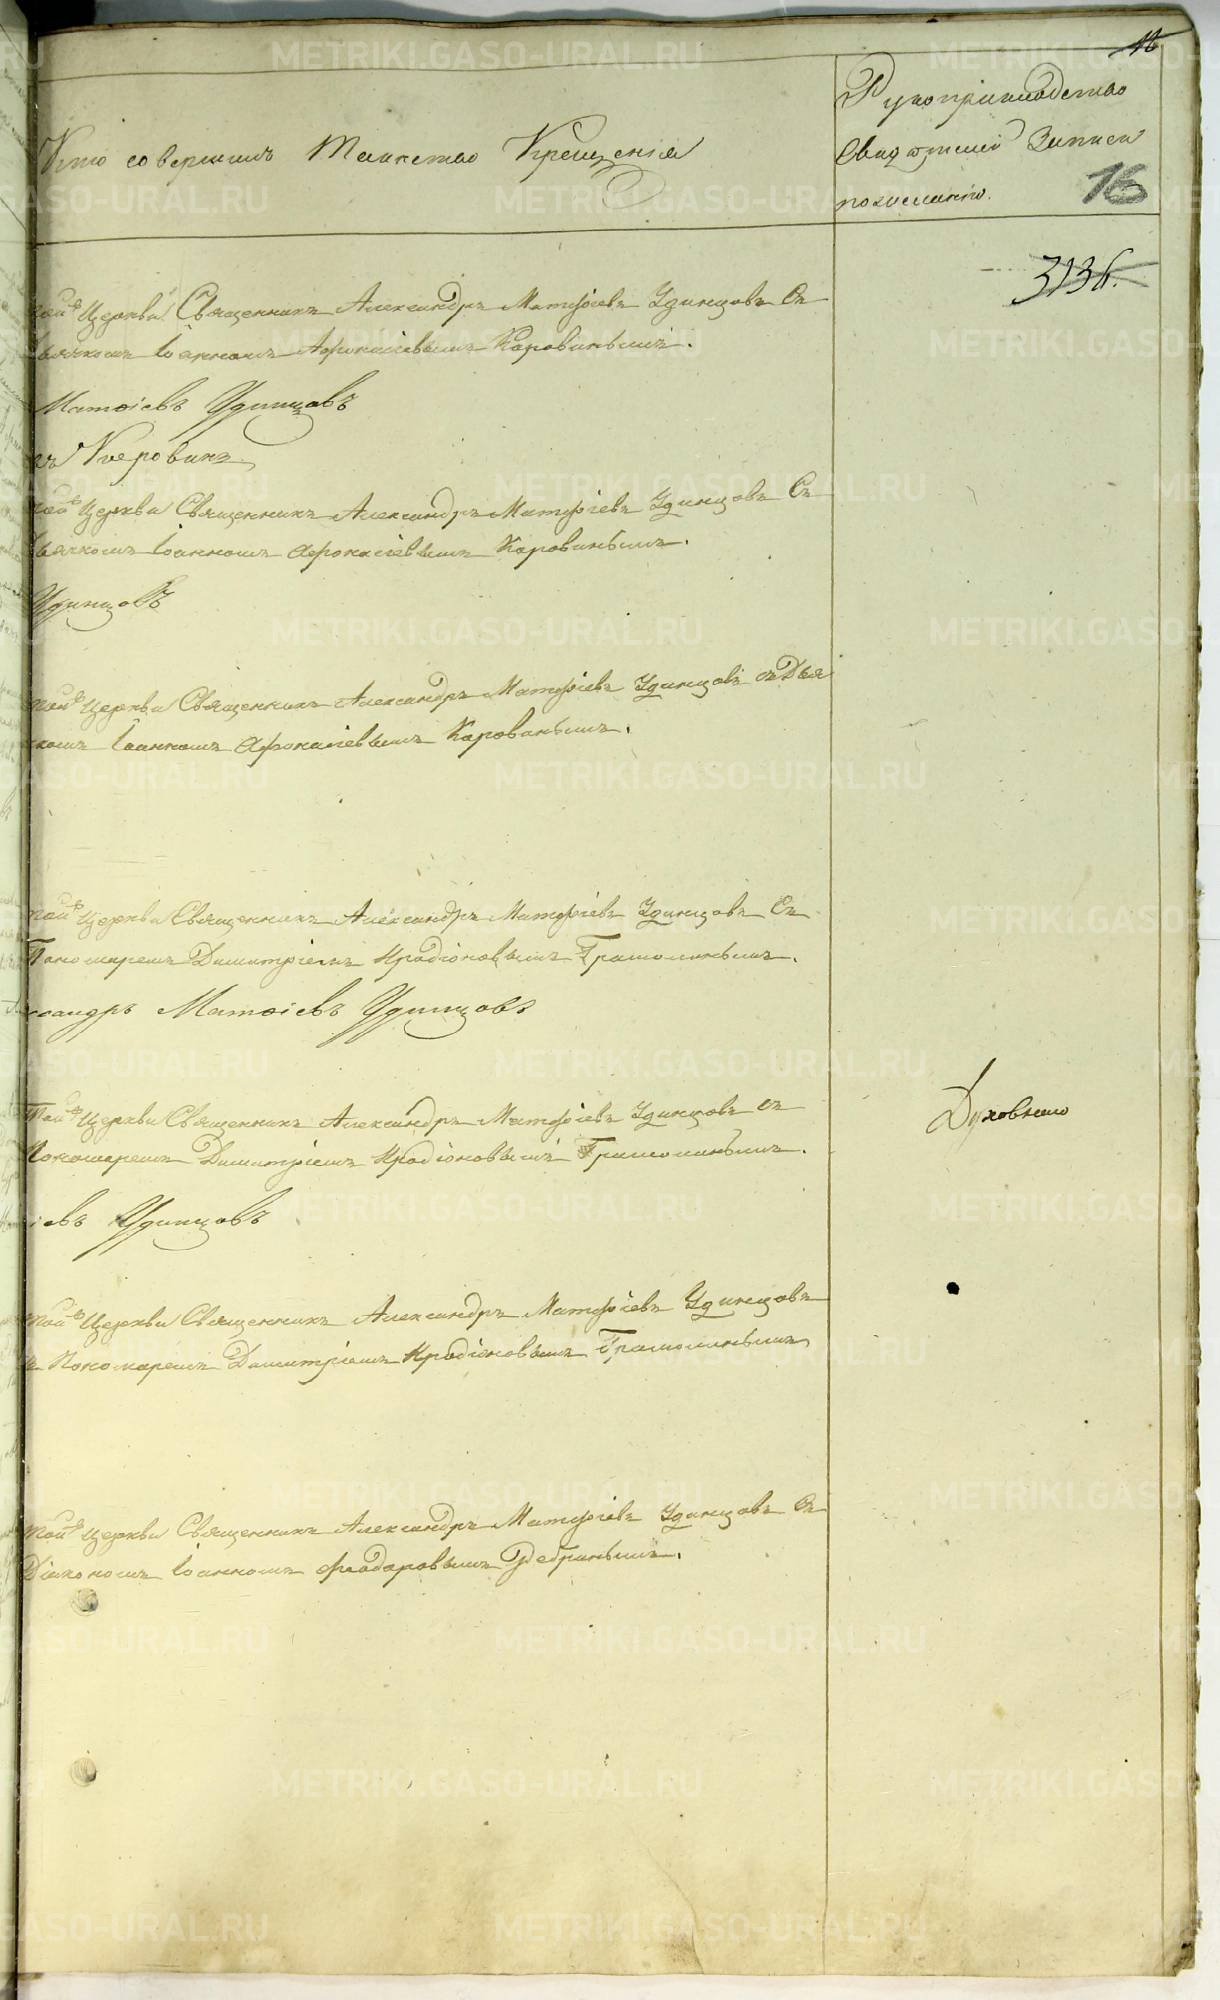 16
Кто совершилъ Таинство Крещенія
Рукоприкладство
Свидетелей Записи
по желанію.
16
3136.
той Церкви Священникъ Александръ Матфіевъ Удинцовъ Съ
Дьячкомъ Іоанномъ Афонасіевымъ Коровинымъ.
Матѳіевъ Удинцовъ
Коровинъ
той Церкви Священникъ Александръ Матфіевъ Удинцовъ Съ
Дьячкомъ Іоанномъ Афонасіевымъ Коровинымъ.
Удинцовъ
той Церкви Священникъ Александръ Матфіевъ Удинцовъ съ Дья
чкомъ Іоанномъ Афонасіевымъ Коровинымъ.
той Церкви Священникъ Александръ Матфіевъ Удинцовъ Съ
Пономаремъ Димитріемъ Иродіоновымъ Грамолинымъ.
ксандръ Матѳіевъ Удинцовъ
Той Церкви Священникъ Александръ Матфіевъ Удинцовъ съ
Пономаремъ Димитріемъ Иродіоновымъ Грамолинымъ.
Духовнаго
іевъ Удинцовъ
той Церкви Священникъ Александръ Матфіевъ Удинцовъ
съ Пономаремъ Димитріемъ Иродіоновымъ Грамолинымъ
той Церкви Священникъ Александръ Матфіевъ Удинцовъ Съ
Діакономъ Іоанномъ Феодоровымъ
METRIKI.GASO-URAL.RU